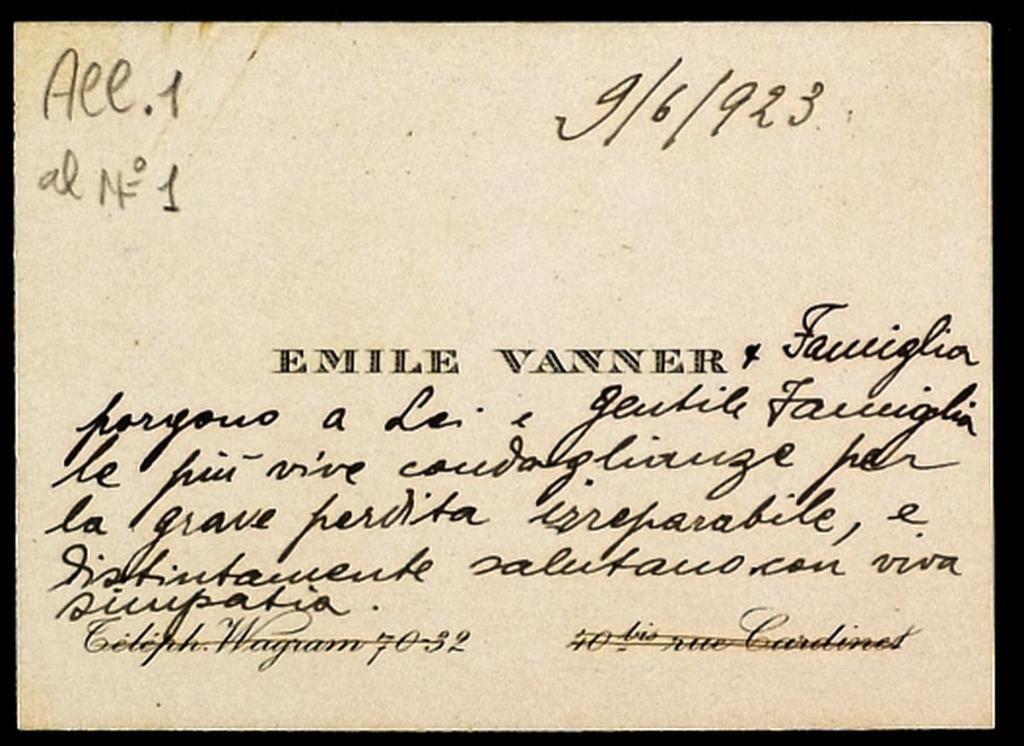 All. 1
al N° 1
9/6/923.
EMILE VANNER & Famiglia
porgono a Lei e gentile Famiglia
le più vive condoglianze per
la grave perdita irreparabile, e
distintamente salutano con viva
simpatia.
Téléph. Wagram 70-32
40bis rue Cardinet